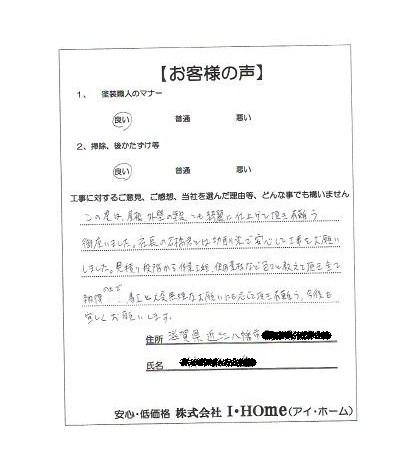 【お客様の声】
1、 塗装職人のマナー
良い 普通 悪い
2、掃除、後かたずけ等
良い 普通 悪い
工事に対するご意見、ご感想、当社を選んだ理由等、どんな事でも構いません
この度は、屋根 外壁の 綺麗に仕上げて頂き有難う
御座いました。 安心して工事をお願い
しました。見積り段階から作業工程、使用素材など 教えて頂き全て
納得の上で 着工 無理なお願いにも応じて頂き有難う、今後も
宜しくお願いします。
住所 滋賀県近江八幡市
氏名
安心・低価格 株式会社 I・HOme(アイ・ホーム)